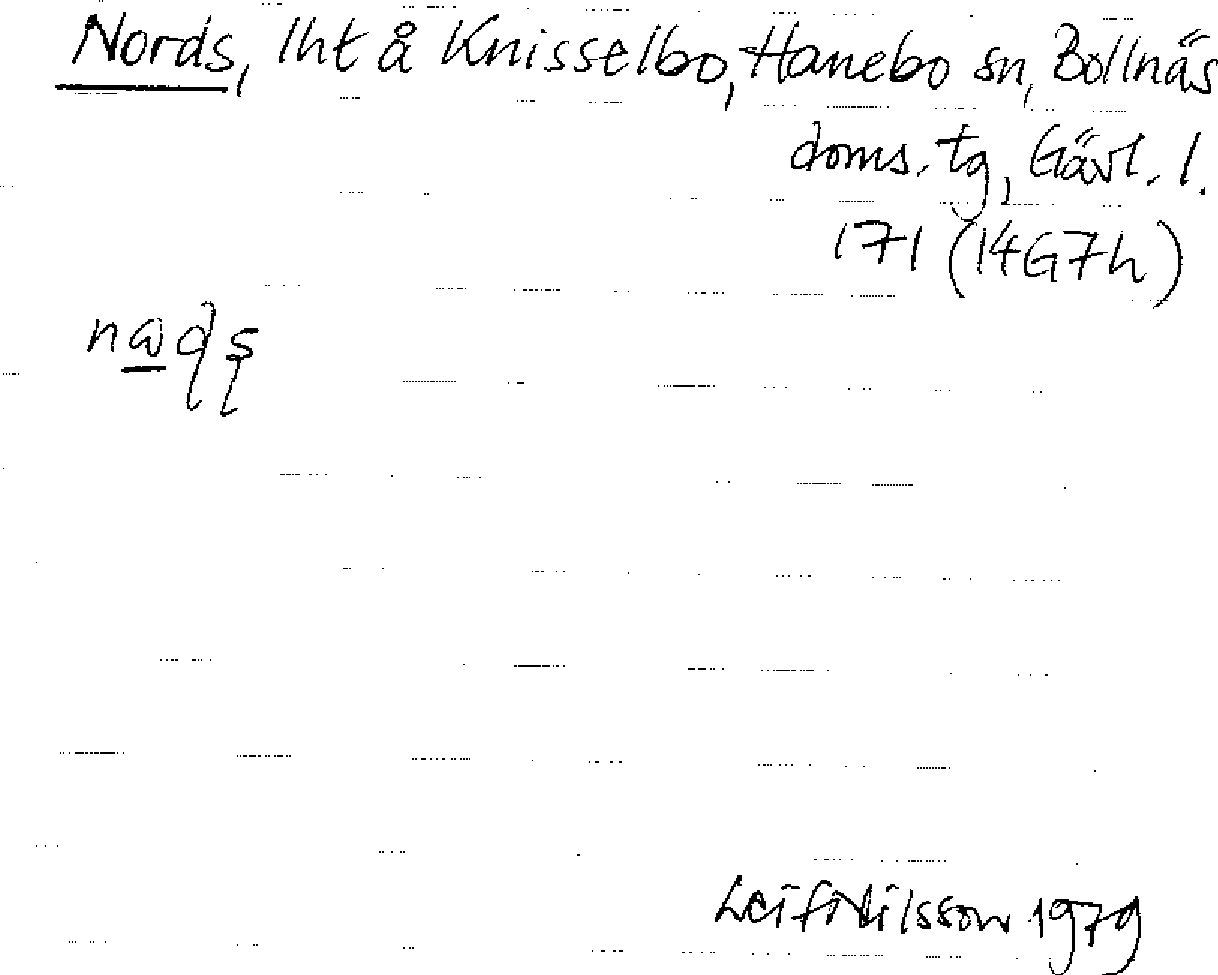 Nords, lht å Knisselbo, Hanebo sn, Bollnäs
doms. tg, Gävl. l.
171 (14G7h)
Leif Nilsson 1979